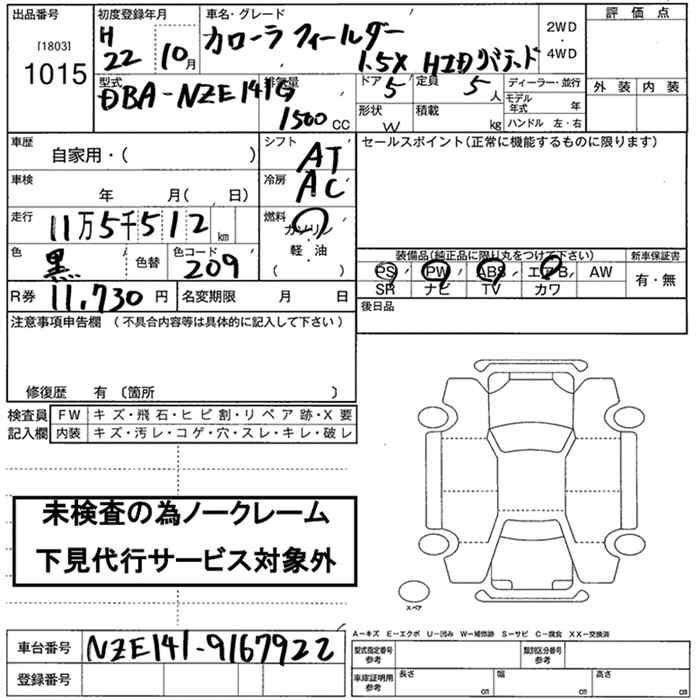 出品番号
[1803]
1015
初度登録年月
H
22 10月
車名・グレード
カローラ フィールダー
1.5X HIDリミテッド
2WD
・
4WD
評価点
外装 内装
型式
DBA-NZE141G
排気量
1500 CC
ドア 5
定員 5 人
形状 W
積載 kg
ディーラー・並行
モデル年式 年
ハンドル 左・右
車歴
自家用・( )
車検
年 月( 、 日)
走行
11万5千512 km
色
黒
色替
色コード
209
シフト
AT
冷房
AC
燃料
ガソリン
軽・油
( )
セールスポイント(正常に機能するものに限ります)
装備品(純正品に限り丸をつけて下さい)
PS PW ABS エアB AW
SR ナビ TV カワ
新車保証書
有・無
R券 11,730 円
名変期限 月 日
後日品
注意事項申告欄 (不具合内容等は具体的に記入して下さい)
修復歴 有 〔箇所 〕
検査員
記入欄
FW キズ・飛石・ヒビ割・リペア跡・X要
内装 キズ・汚レ・コゲ・穴・スレ・キレ・破レ
未検査の為ノークレーム
下見代行サービス対象外
スペア
車台番号 NZE141-9167922
登録番号
A-キズ E-エクボ U-凹み W-補修跡 S-サビ C-腐食 XX-交換済
型式指定番号
参考
類別区分番号
参考
車庫証明用
参考
長さ cm
幅 cm
高さ cm